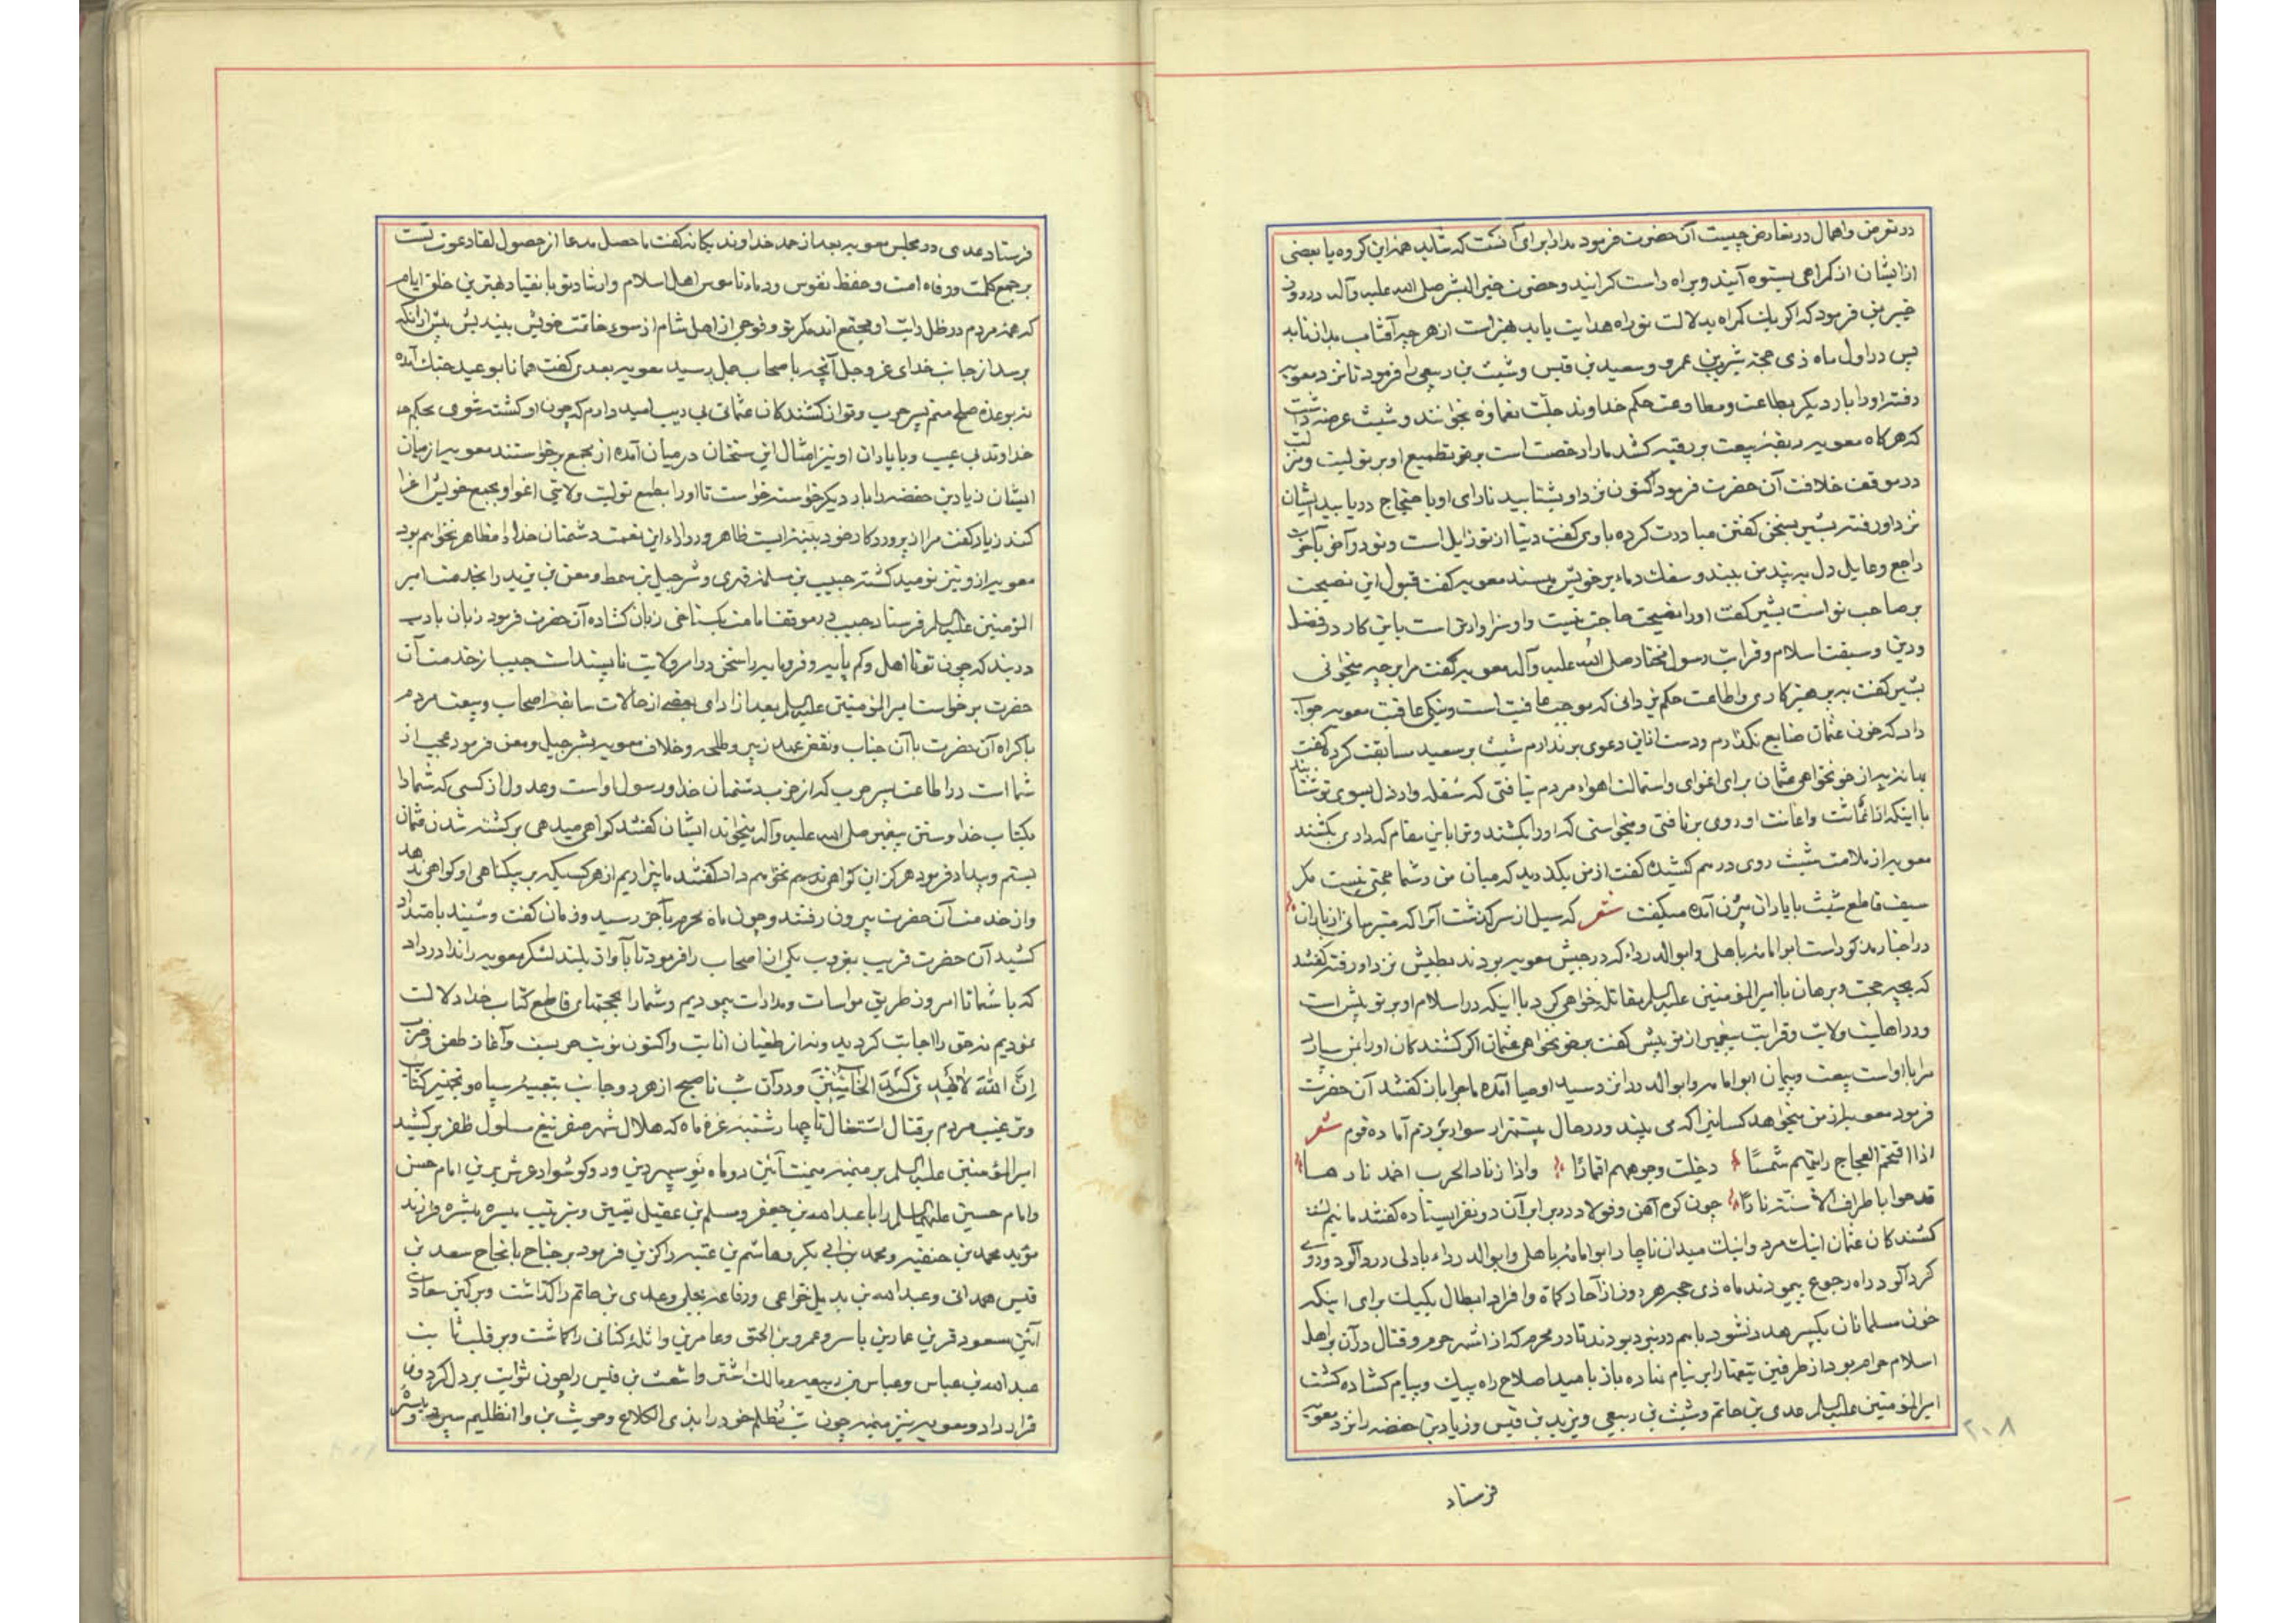 در تعرض و اهمال در تعارض چیست آن حضرت فرمود مدارا برای آنست که شاید همه این کروه یا بعضی
از ایشان از کمراهی بستوه آیند و براه راست کرایند و حضرت خیر البشر صلی الله علیه و آله در روز
خیبر بمن فرمود که اکر یک کمراه بدلالت تو راه هدایت یابد بهتر است از هر چه آفتاب بدان تابد
پس در اول ماه ذی حجه بشیر بن عمرو و سعید بن قیس و شبث بن ربعی را فرمود تا نزد معویه
رفته او را بار دیکر بطاعت و مطاوعت حکم خداوند جلت نعماؤه بخوانند و شبث عرضه داشت
که هرکاه معویه ربقه بیعت بر رقبه کشد ما را رخصت است بر تطمیع او بر تولیت و منزلت
در موقف خلافت آن حضرت فرمود اکنون نزد او بشتابید تا رای او با احتجاج دریابید ایشان
نزد او رفته بشیر بسخن کفتن مبادرت کرده باو می کفت دنیا از تو زایل است و تو در آخر بآخرت
راجع و مایل دل بر پند من ببند و سفک دماء بر خویش مپسند معویه کفت قبول این نصیحت
بر صاحب تو است بشیر کفت او را نصیحت حاجت نیست و او سزاوارتر است باین کار در فضل
و دین و سبقت اسلام و قرابت رسول مختار صلی الله علیه و آله معویه کفت مرا بر چه میخوانی
بشیر کفت به پرهیزکاری و اطاعت حکم یزدانی که موجب عافیت است و نیکی عاقبت معویه جواب
داد که خون عثمان ضایع نکذارم و دست از این دعوی برندارم شبث بر سعید سابقت کرد کفت
بهانه به از خونخواهی عثمان برای اغوای و استمالت اهواء مردم نیافتی که سفله و ارذل بسوی تو شتابند
با اینکه از اغاثت و اعانت او روی برتافتی و میخواستی که او را بکشند و ترا باین مقام که داری بکشند
معویه از ملامت شبث روی درهم کشیده کفت از من بکذرید که میان من و شما حجتی نیست مکر
سیف قاطع شبث با یاران بیرون آمده میکفت شعر که سیل از سر کذشت آنرا که میترسانی از باران
در اخبار مذکور است ابو امامه باهلی و ابو الدرداء که در جیش معویه بودند بطیش نزد او رفته کفتند
که بچه حجت و برهان با امیر المؤمنین علیه السلم مقاتله خواهی کرد با اینکه در اسلام او بر تو پیش است
و در اهلیت ولایت و قرابت پیغمبر از تو بیش کفت بخونخواهی عثمان اکر کشندکان او را بمن سپارد
مرا با او است بیعت و پیمان ابو امامه و ابو الدرداء نزد سید اوصیا آمده ماجرا باز کفتند آن حضرت
فرمود معویه از من میخواهد کسانیرا که می بیند و در حال بیستهزار سوار بر دم آماده قوم شعر
اذا اقتحم العجاج رایتهم شمسًا دخلت وجوههم اقمارًا و اذا زناد الحرب اخمد نارها
قدحوا باطراف الاسنته نارًا چون کوه آهن و فولاد در برابر آن دو نفر ایستاده کفتند مائیم
کشندکان عثمان اینک مرد و اینک میدان ناچار ابو امامه باهلی و ابو الدرداء با دلی درد آلود و روی
کرد آلود راه رجوع پیمودند ماه ذی حجه هر روز از آحاد کماة و افراد ابطال یکیک برای اینکه
خون مسلمانان یکسر هدر نشود باهم در نبرد بودند تا در محرم که از اشهر حرم و قتال در آن بر اهل
اسلام حرام بود از طرفین تیغها را بر نیام نهاده باز بامید اصلاح راه پیک و پیام کشاده کشت
امیر المؤمنین علیه السلم عدی بن حاتم و شبث بن ربیعی و یزید بن قیس و زیاد بن حفصه را نزد معویه
فرستاد
۲۰۸
فرستاد عدی در مجلس معویه بعد از حمد خداوند یکانه کفت ما حصل مدعا از حصول لقا دعوت تست
بر جمع کلمت و رفاه امت و حفظ نفوس و دماء ناموس اهل اسلام و ارشاد تو بانقیاد بهترین خلق ایام
که همه مردم در ظل رایت او مجتمع اند مکر تو و فوجی از اهل شام از سوء خاتمت خویش بیندیش پیش از آنکه
برسد از جانب خدای عز و جل آنچه باصحاب جمل رسید معویه بعدی کفت همانا بوعید جنک آمده
نه بوعده صلح منم پسر حرب و تو از کشندکان عثمانی بی ریب امید دارم که چون او کشته شوی بحکم
خداوند بی عیب و با یاران او نیز امثال این سخنان در میان آمده از مجمع برخواستند معویه از میان
ایشان زیاد بن حفصه را بار دیکر خواسته خواست تا او را بطمع تولیت ولایتی اغوا و بجمع خویش اغرا
کند زیاد کفت مرا از پروردکار خود بینه ایست ظاهر و در ازاء این نعمت دشمنان خدا را مظاهر نخواهم بود
معویه از و نیز نومید کشته حبیب بن مسلمه فهری و شرحبیل بن سمط و معن بن یزید را بخدمت امیر
المؤمنین علیه السلم فرستاد حبیب در موقف امامت بکستاخی زبان کشاده آن حضرت فرمود زبان بادب
دربند که چون تو نا اهل و کم پایه و فرومایه را سخن در امر ولایت ناپسند است حبیب از خدمت آن
حضرت برخواست امیر المؤمنین علیه السلم بعد از ادای بعضی از حالات سابقه اصحاب و بیعت مردم
باکراه آن حضرت با آن جناب و نقض عهد زبیر و طلحه و خلاف معویه بشرحبیل و معن فرمود عجب از
شما است در اطاعت پسر حرب که از حزب دشمنان خدا و رسول او است و عدول از کسی که شما را
بکتاب خدا و سنن پیغمبر صلی الله علیه و آله میخواند ایشان کفتند کواهی میدهی بر کشته شدن عثمان
بستم و بیداد فرمود هرکز این کواهی نخواهم داد کفتند ما بیزاریم از هر کسیکه بر بیکناهی او کواهی ندهد
و از خدمت آن حضرت بیرون رفتند و چون ماه محرم بآخر رسید و زمان کفت و شنید بامتداد
کشید آن حضرت قریب بغروب یکی از اصحاب را فرمود تا بآواز بلند لشکر معویه را ندا در داد
که با شما تا امروز طریق مواسات و مدارات پیمودیم و شما را بحجتهای قاطع کتاب خدا دلالت
نمودیم نه حق را اجابت کردید و نه از طغیان انابت و اکنون نوبت حربست و آغاز طعن و ضرب
اِنَّ اللّٰهَ لا یَهْدِی کَیْدَ الخٰائِنینَ و در آن شب تا صبح از هر دو جانب بتعبیه سپاه و تجهیز کتائب
و ترغیب مردم بر قتال اشتغال تا چهارشنبه غره ماه که هلال شهر صفر تیغ مسلول ظفر برکشید
امیر المؤمنین علیه السلم بر میمنه میمنت آئین دو ماه نو سپهر دین و دو کوشوار عرش برین امام حسن
و امام حسین علیهما السلم را با عبد الله بن جعفر و مسلم بن عقیل تعیین و بترتیب میسره میسره فرازید
مؤید محمد بن حنفیه و محمد بن ابی بکر و هاشم بن عتبه را کزین فرمود بر جناح با نجاح سعد بن
قیس همدانی و عبد الله بن بدیل خزاعی و رفاعه بجلی و عدی بن حاتم را کذاشت و بر کمین سعادت
آئین مسعود قرین عمار بن یاسر و عمرو بن الحمق و عامر بن واثله کنانی را کماشت و بر قلب ثابت
عبد الله بن عباس و عباس بن ربیعه و مالک اشتر و اشعث بن قیس را چون ثوابت بر دل کردون
قرار داد و معویه نیز میمنه چون شب مُظلم خود را بذی الکلاع و حوشب بن ذا الظلیم سپرد و میسره